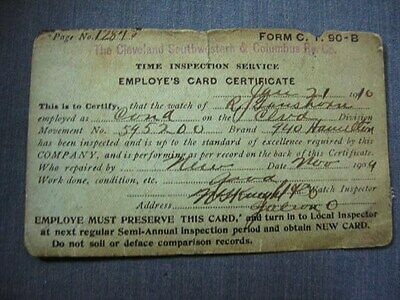 Page No. 12845 FORM C. T. 90-B
The Cleveland Southwestern & Columbus Ry. Co.
TIME INSPECTION SERVICE
EMPLOYE'S CARD CERTIFICATE
21 1910
This is to Certify, that the watch of R.
employed as Cond on the Cleve Division
Movement No. 595200 Brand 940 Hamilton
has been inspected and is up to the standard of excellence required by this
COMPANY, and is performing as per record on the back of this Certificate.
Who repaired by New Date Nov 1909
Work done, condition, etc. good
Watch Inspector
Address O
EMPLOYE MUST PRESERVE THIS CARD, and turn in to Local Inspector
at next regular Semi-Annual Inspection period and obtain NEW CARD.
Do not soil or deface comparison records.